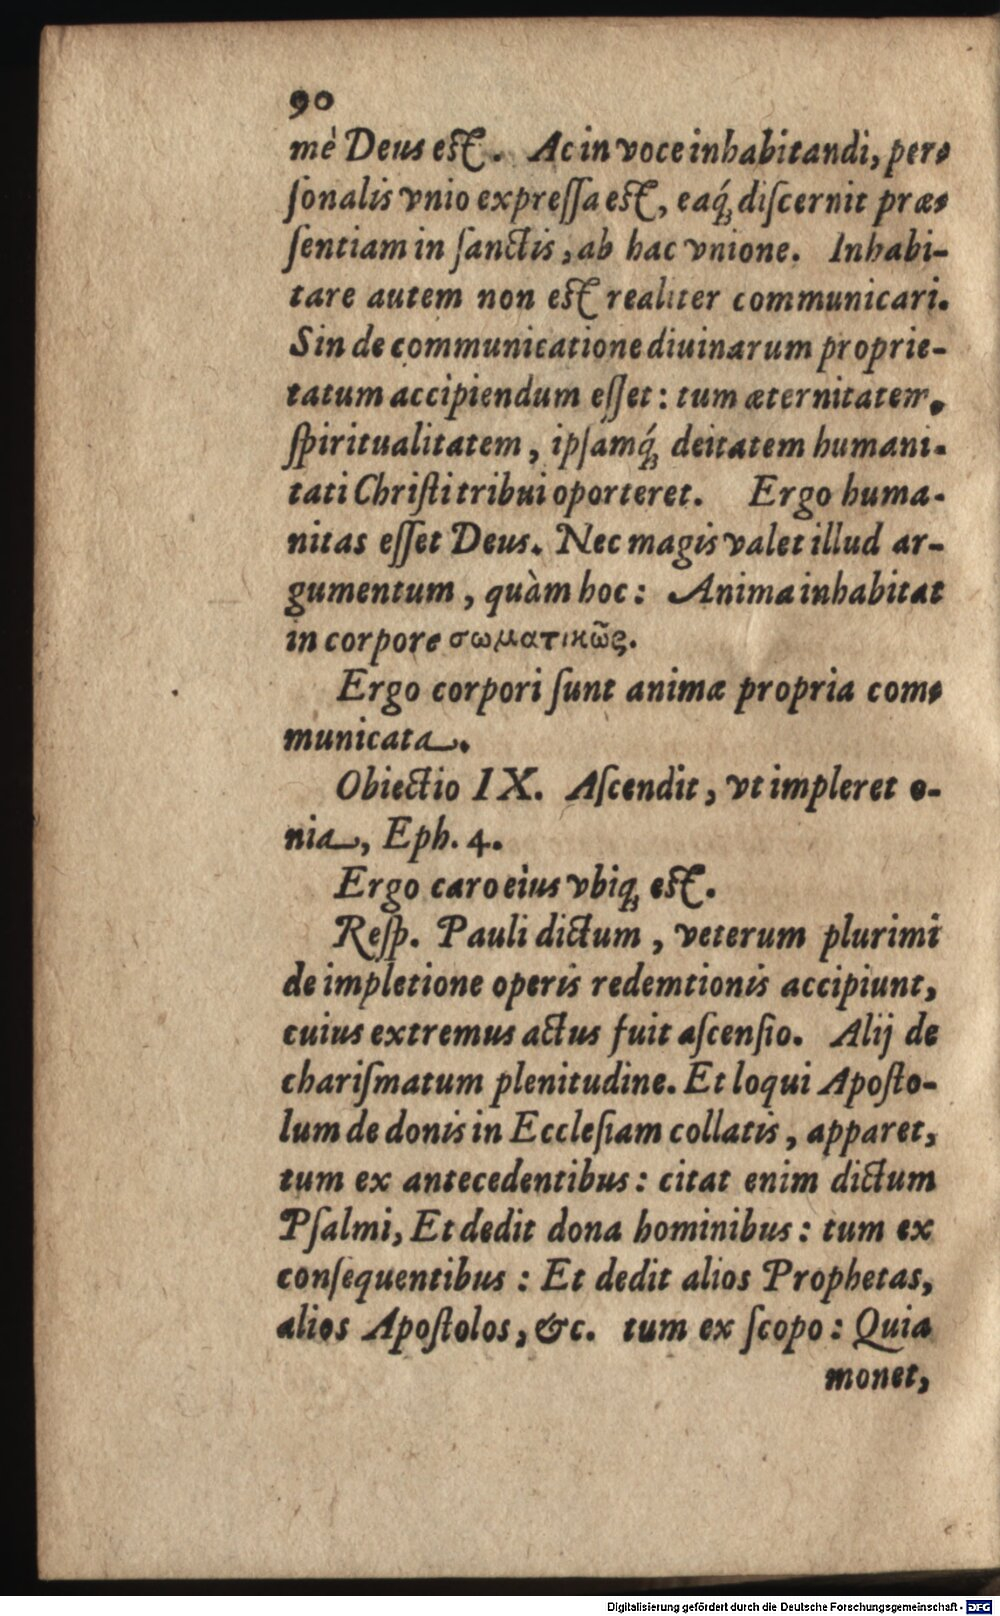 90
mè Deus est. Ac in voce inhabitandi, per-
ſonalis vnio expreſſa est, eaq́; diſcernit præ-
ſentiam in ſanctis, ab hac vnione. Inhabi-
tare autem non est realiter communicari.
Sin de communicatione diuinarum proprie-
tatum accipiendum eſſet: tum æternitatem,
ſpiritualitatem, ipſamq́; deitatem humani-
tati Chriſti tribui oporteret. Ergo huma-
nitas eſſet Deus. Nec magis valet illud ar-
gumentum, quàm hoc: Anima inhabitat
in corpore σωματικῶς.
Ergo corpori ſunt animæ propria com-
municata.
Obiectio IX. Aſcendit, vt impleret o-
nia, Eph. 4.
Ergo caro eius vbiq; est.
Reſp. Pauli dictum, veterum plurimi
de impletione operis redemtionis accipiunt,
cuius extremus actus fuit aſcenſio. Alij de
chariſmatum plenitudine. Et loqui Apoſto-
lum de donis in Eccleſiam collatis, apparet,
tum ex antecedentibus: citat enim dictum
Pſalmi, Et dedit dona hominibus: tum ex
conſequentibus: Et dedit alios Prophetas,
alios Apoſtolos, &c. tum ex ſcopo: Quia
monet,
Digitalisierung gefördert durch die Deutsche Forschungsgemeinschaft - DFG